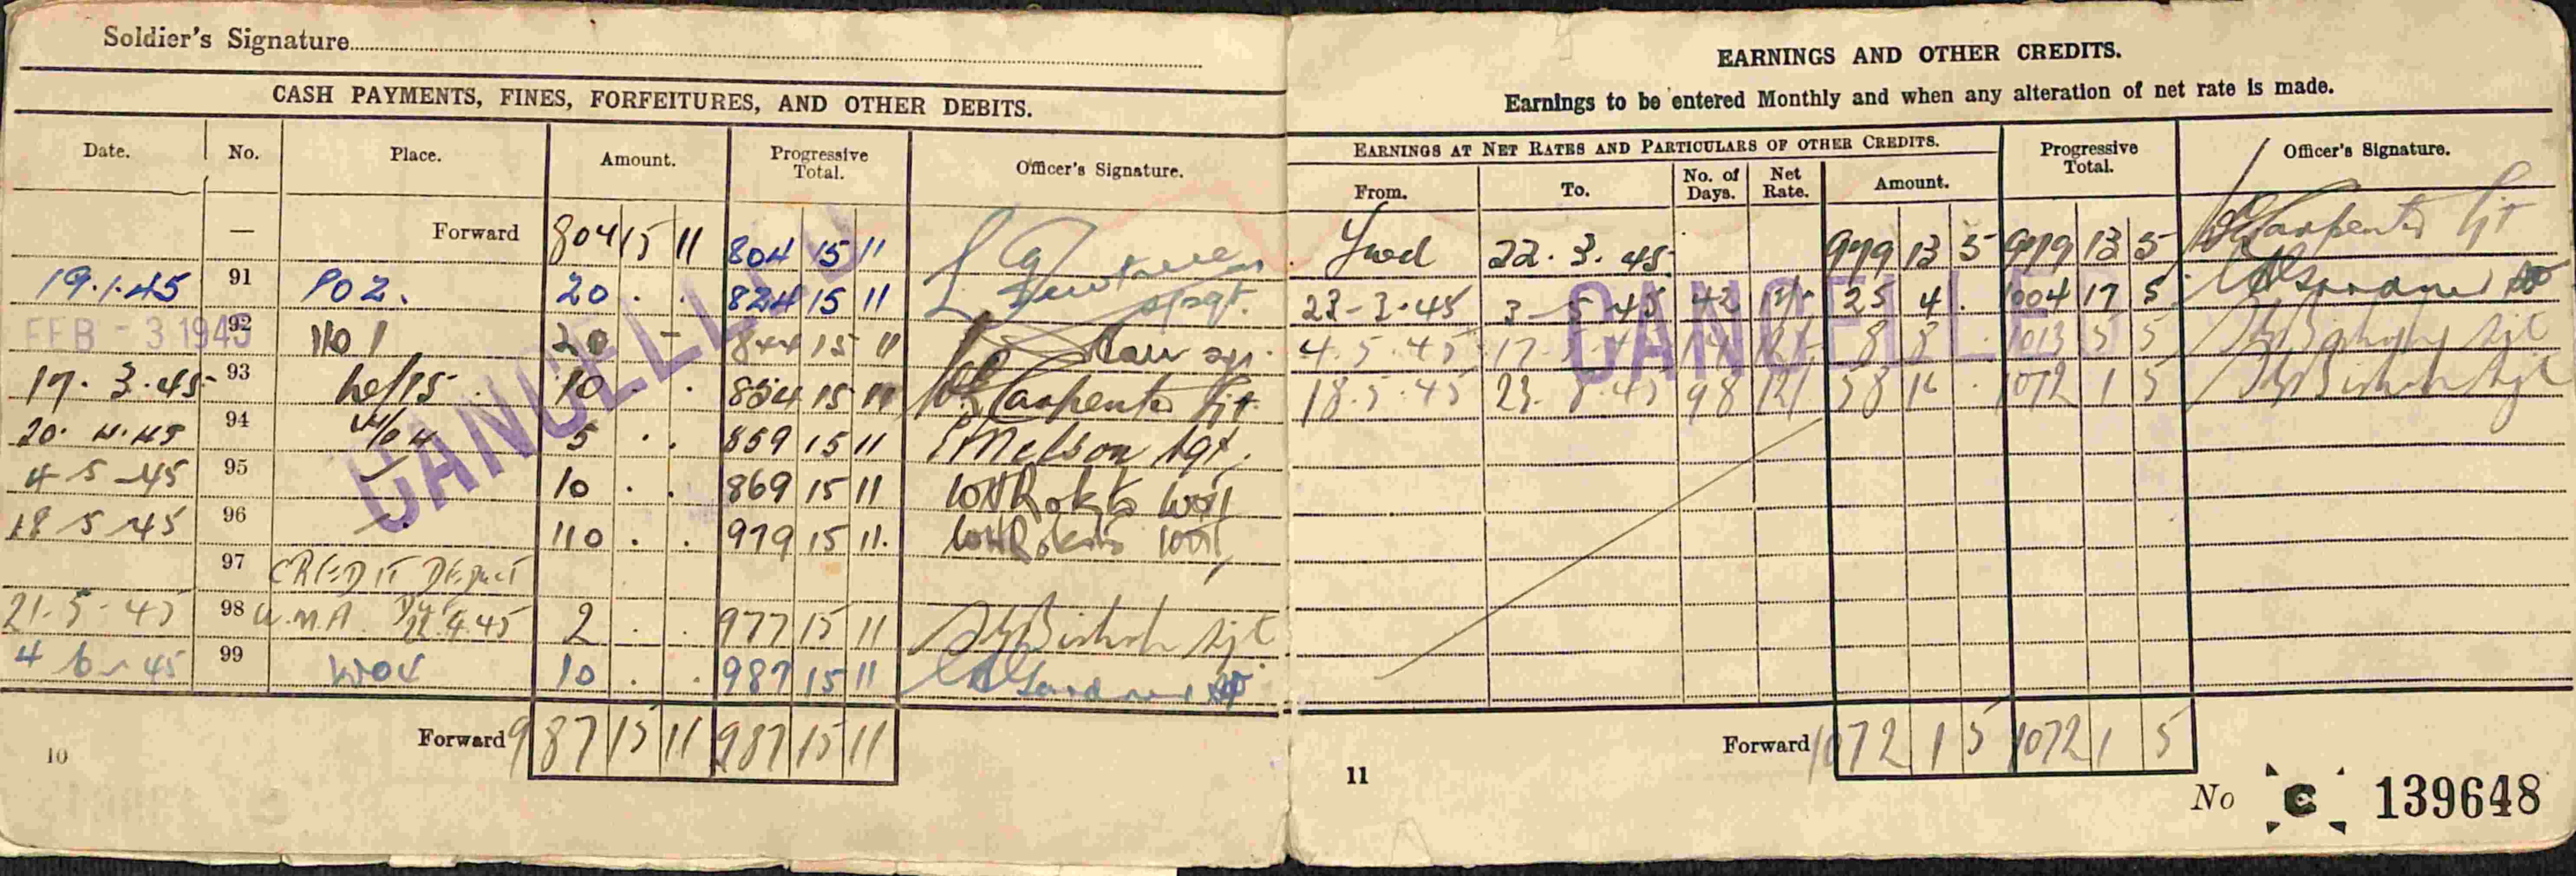 Soldier's Signature
CASH PAYMENTS, FINES, FORFEITURES, AND OTHER DEBITS.
Date. No. Place. Amount. Progressive Total. Officer's Signature.
— Forward 804 15 11 804 15 11
19.1.45 91 POZ. 20 . . 824 15 11
FEB -3 1945 92 20 - 844 15 11
17.3.45 93 10 . . 854 15 11 Carpenter Sjt
20.4.45 94 5 . . 859 15 11 Sgt.
4-5-45 95 10 . . 869 15 11
18 5 45 96 110 . . 979 15 11.
97 CREDIT
21-5-45 98 W.M.A. 22.4.45 2 . . 977 15 11 Bishop Sjt
4 6 45 99 10 . . 987 15 11
Forward 987 15 11 987 15 11
10
CANCELLED
EARNINGS AND OTHER CREDITS.
Earnings to be entered Monthly and when any alteration of net rate is made.
EARNINGS AT NET RATES AND PARTICULARS OF OTHER CREDITS. Progressive Total. Officer's Signature.
From. To. No. of Days. Net Rate. Amount.
Fwd 22.3.45 979 13 5 979 13 5 Carpenter Sjt
23-3-45 3-5-45 42 12/- 25 4 . 1004 17 5
4.5.45 14 12/- 8 8 . 1013 5 5 Bishop Sjt
18.5.45 23.8.45 98 12/ 58 16 . 1072 1 5 Bishop Sjt
Forward 1072 1 5 1072 1 5
11
No C 139648